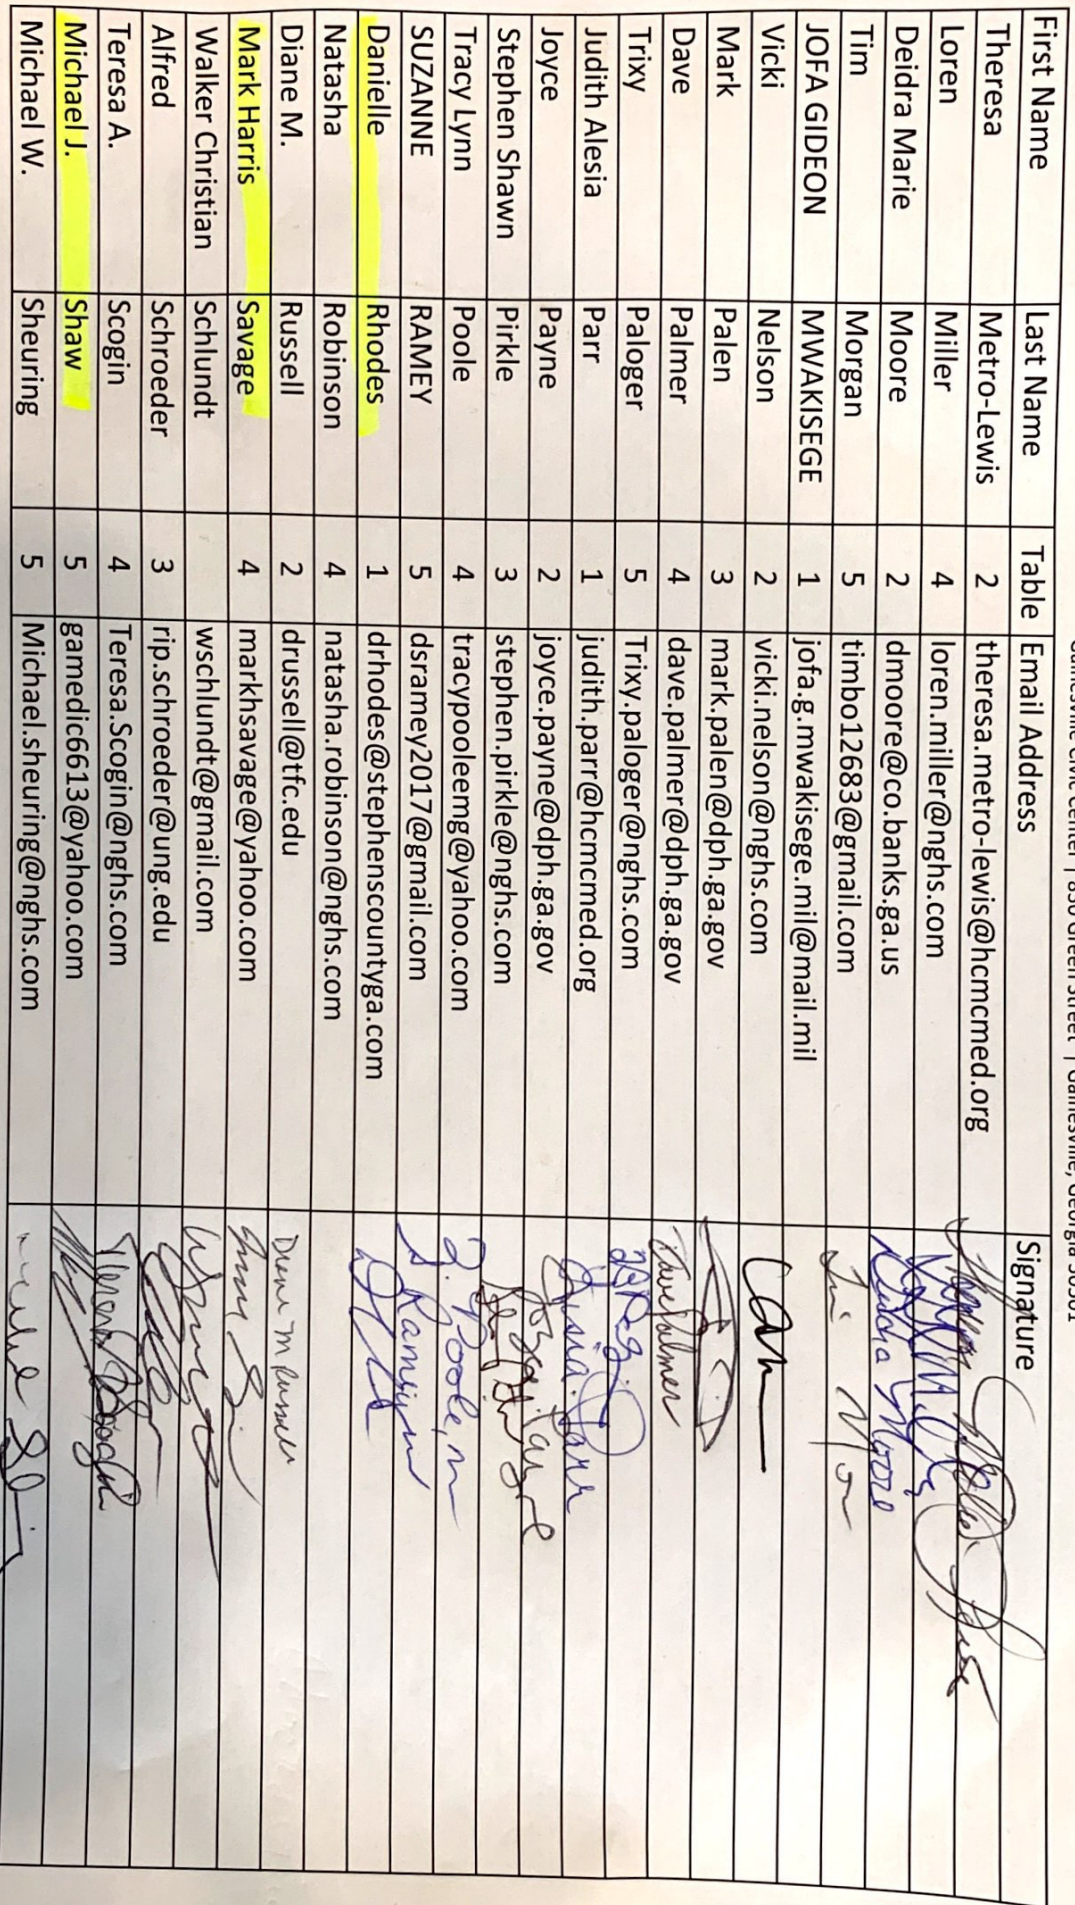 Gainesville Civic Center | 830 Green Street | Gainesville, Georgia 30501
First Name Last Name Table Email Address Signature
Theresa Metro-Lewis 2 theresa.metro-lewis@hcmcmed.org
Loren Miller 4 loren.miller@nghs.com
Deidra Marie Moore 2 dmoore@co.banks.ga.us Deidra Moore
Tim Morgan 5 timbo12683@gmail.com Tim
JOFA GIDEON MWAKISEGE 1 jofa.g.mwakisege.mil@mail.mil
Vicki Nelson 2 vicki.nelson@nghs.com
Mark Palen 3 mark.palen@dph.ga.gov
Dave Palmer 4 dave.palmer@dph.ga.gov Dave Palmer
Trixy Paloger 5 Trixy.paloger@nghs.com
Judith Alesia Parr 1 judith.parr@hcmcmed.org Parr
Joyce Payne 2 joyce.payne@dph.ga.gov Joyce Payne
Stephen Shawn Pirkle 3 stephen.pirkle@nghs.com
Tracy Lynn Poole 4 tracypooleemg@yahoo.com T. Poole, rn
SUZANNE RAMEY 5 dsramey2017@gmail.com S Ramey
Danielle Rhodes 1 drhodes@stephenscountyga.com
Natasha Robinson 4 natasha.robinson@nghs.com
Diane M. Russell 2 drussell@tfc.edu Diane M Russell
Mark Harris Savage 4 markhsavage@yahoo.com
Walker Christian Schlundt wschlundt@gmail.com
Alfred Schroeder 3 rip.schroeder@ung.edu
Teresa A. Scogin 4 Teresa.Scogin@nghs.com Teresa Scogin
Michael J. Shaw 5 gamedic6613@yahoo.com
Michael W. Sheuring 5 Michael.sheuring@nghs.com